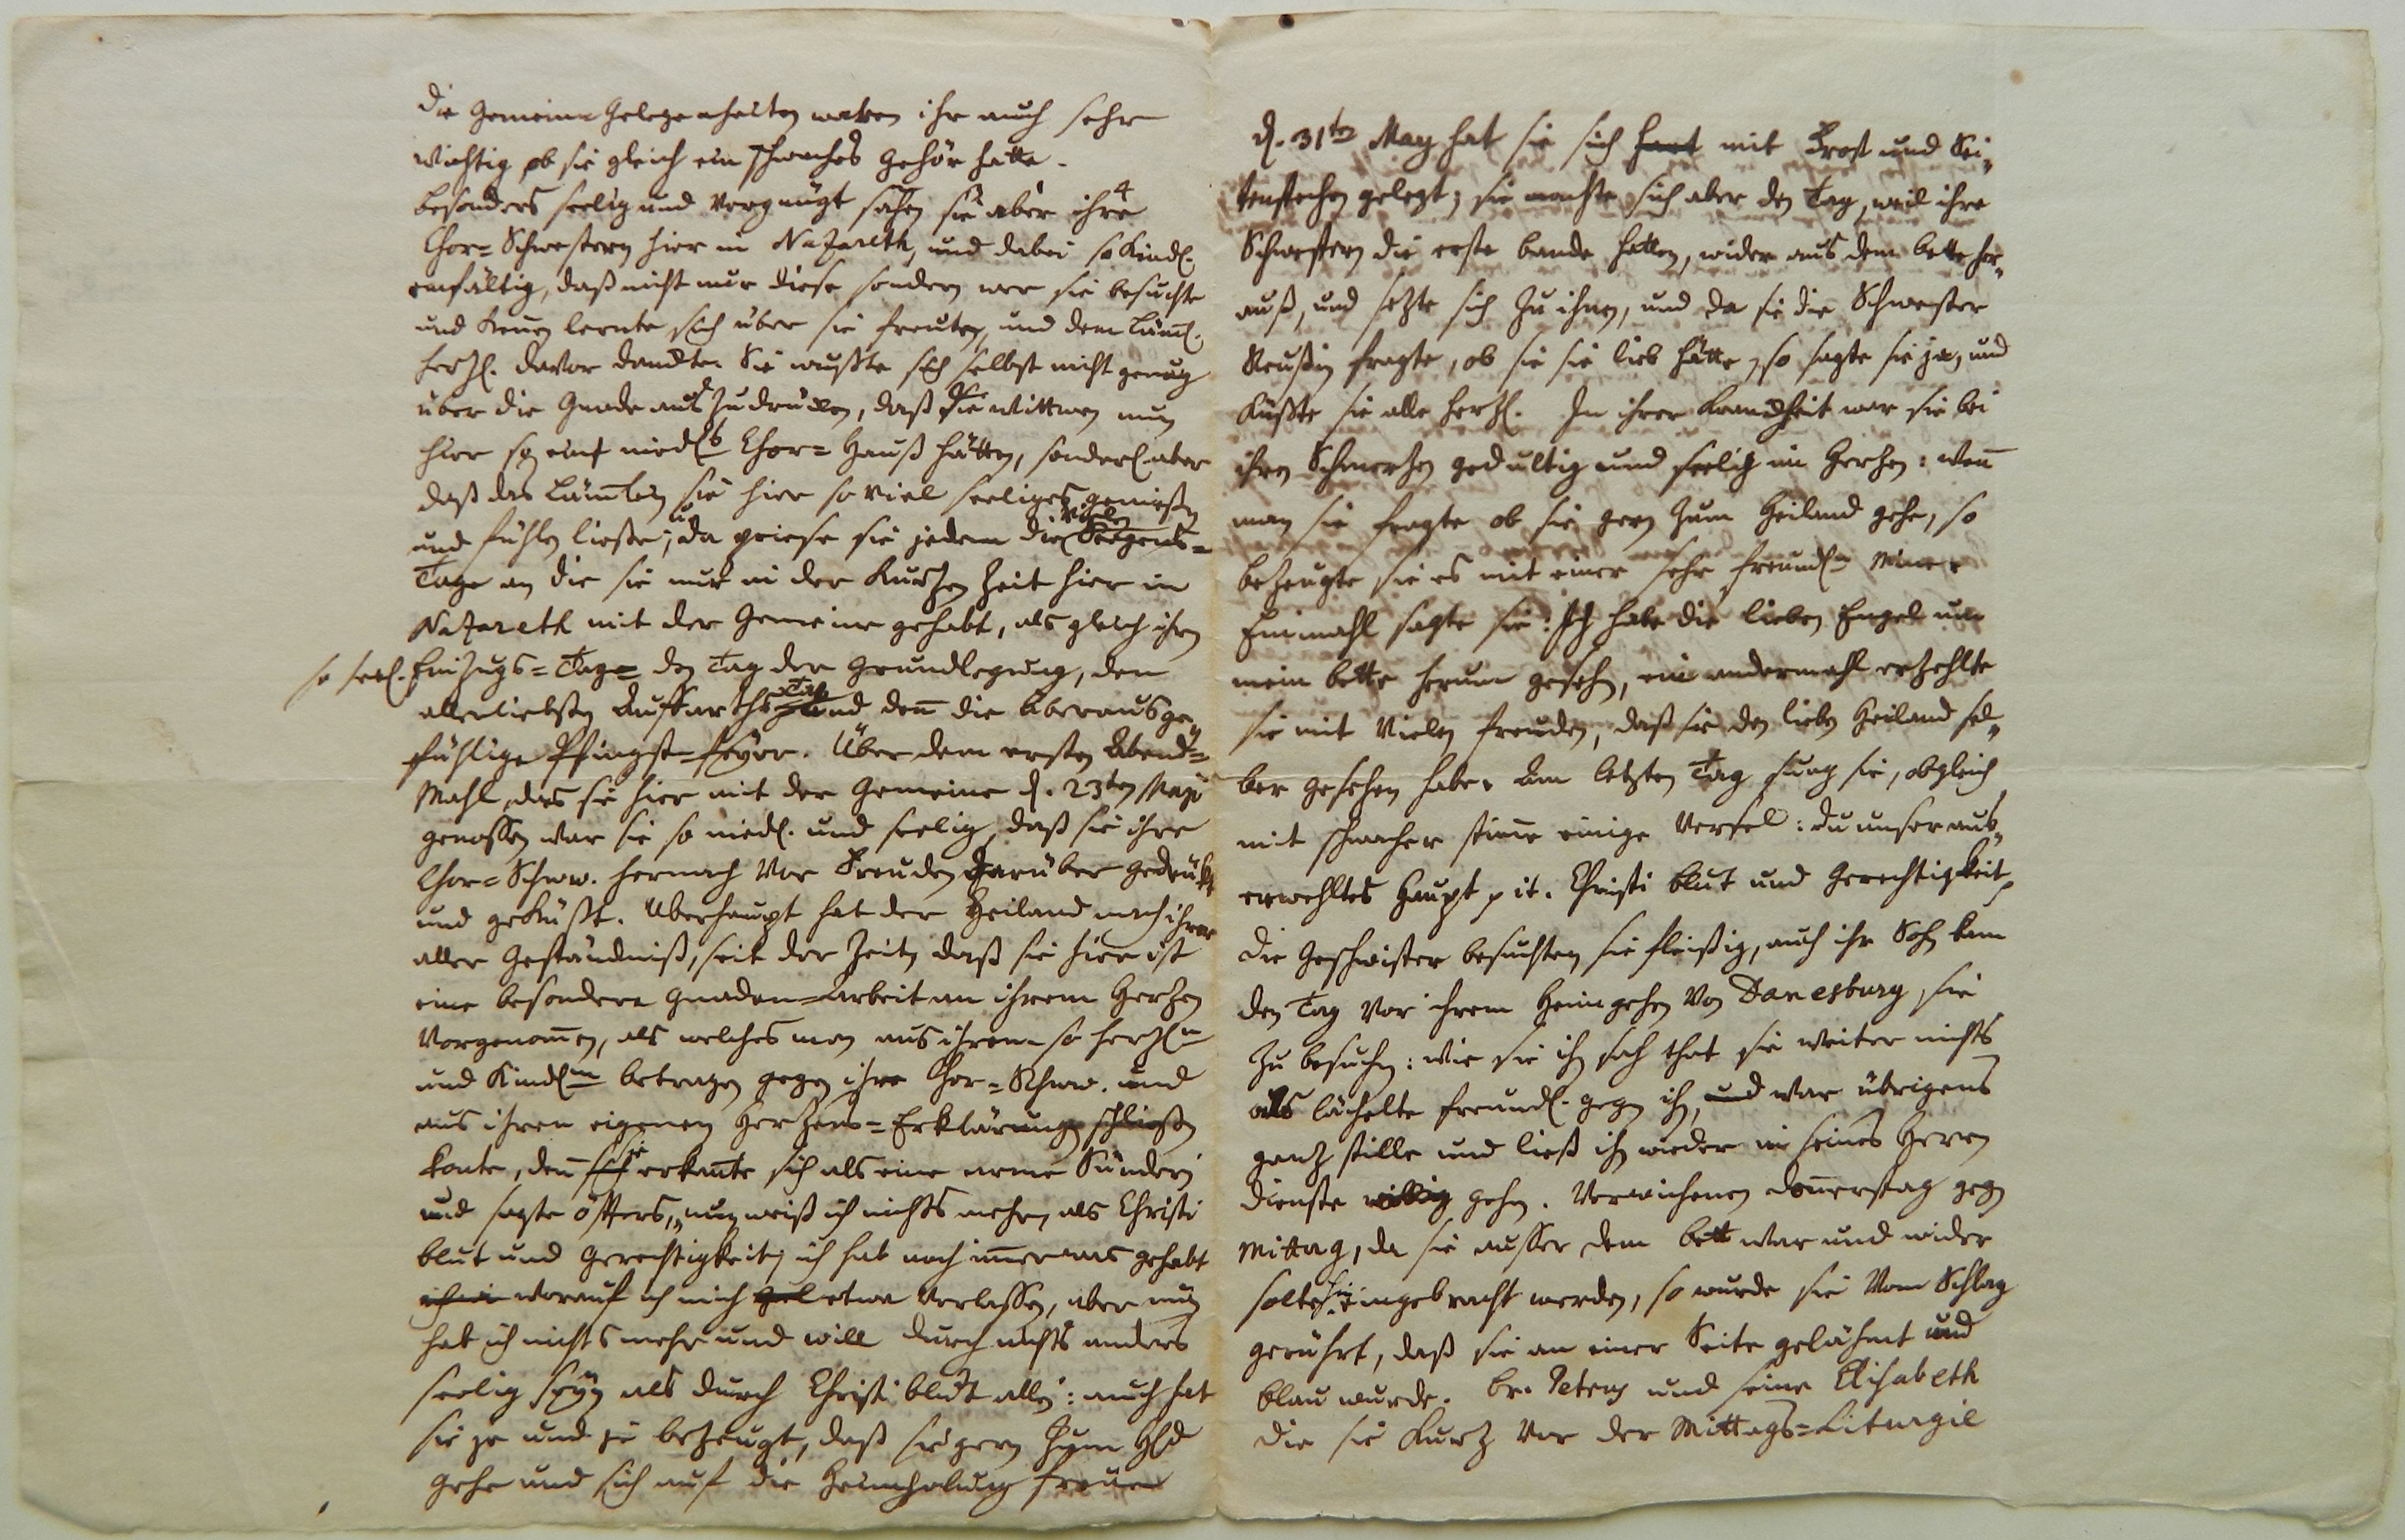 die Gemein-Gelegenheiten waren ihr auch sehr
wichtig, ob sie gleich ein schwaches Gehör hatte.
besonders seelig und vergnügt sahen sie aber ihre 4
Chor=Schwestern hier in Nazareth, und dabei so Kindl.
einfältig, daß nicht nur diese sondern wer sie besuchte
und kennen lernte sich über sie freuten, und dem Lämml.
hertzl. davor danckte. Sie wußte sich selbst nicht genug
über die Gnade auszudrücken, daß die Wittwen nun
hier so ein niedl.s Chor=Hauß hätten, sonderl. aber
daß das Lämmlein sie hier so viel seeliges genießen
und fühlen ließe; u. da priese sie jedem die vielen Seegens=
Tage an die sie nur in der kurtzen Zeit hier in
Nazareth mit der Gemeine gehabt, als gleich ihren
so seel. Einzugs=Tag= den Tag der Grundlegung, den
allerliebsten Auffarths Tag und denn die überausge,,
fühlige Pfingst=feyer. Über dem ersten Abend=
Mahl, das sie hier mit der Gemeine d. 23ten May
genossen war sie so niedl. und seelig, daß sie ihre
Chor=Schww. hernach vor Freuden darüber gedrükt
und geküßt. Überhaupt hat der Heiland nach ihrer
aller Geständniß, seit der Zeit, daß sie hier ist
eine besondere Gnaden=Arbeit an ihrem Hertzen
vorgenommen, als welches man aus ihrem so hertzl.n
und Kindl.n betragen gegen ihre Chor=Schww. und
aus ihren eigenen Hertzens=Erklärungen schließen
konte, denn sie erkante sich als eine arme Sünderin
und sagte öffters, „nun weiß ich nichts mehr, als Christi
blut und Gerechtigkeit, ich hab noch immer was gehabt
worauf ich mich etwa verlassen, aber nun
hab ich nichts mehr und will durch nichts anders
seelig seyn als durch Christi blut allein: auch hat
sie je und je bezeugt, daß sie gern zum Hld
gehe und sich auf die Heimholung freue
d. 31ten May hat sie sich hart mit Frost und Sei,,
tenstechen gelegt; sie machte sich aber den Tag, weil ihre
Schwestern die erste bande hatten, wider aus dem bette her,,
auß, und setzte sich zu ihnen, und da sie die Schwester
Neußin fragte, ob sie sie lieb hätte, so sagte sie ja, und
küßte sie alle hertzl. In ihrer Kranckheit war sie bei
ihren Schmertzen gedultig und seelig im Hertzen: wenn
man sie fragte ob sie gern zum Heiland gehe, so
bezeugte sie es mit einer sehr freundl.n Mine.
Einmahl sagte sie: Ich habe die lieben Engel um
mein bette herum gesehn, ein andermahl erzehlte
sie mit vielen freuden, daß sie den lieben Heiland sel,,
ber gesehen habe. Am letzten Tag sung sie, obgleich
mit schwacher stimme einige Versel: du unser aus,,
erwehltes Haupt p it. Christi blut und Gerechtigkeit p
die Geschwister besuchten sie fleißig, auch ihr Sohn kam
den Tag vor ihrem Heimgehen von Danesburg, sie
zu besuchen: wie sie ihn sah that sie weiter nichts
als lächelte freundl. gegen ihn, und war übrigens
gantz stille und ließ ihn wieder in seines Herrn
dienste willig gehen. Verwichenen donnerstag gegen
Mittag, da sie ausser dem bett war und wider
solte hineingebracht werden, so wurde sie vom Schlag
gerührt, daß sie an einer Seite gelähmt und
blau wurde. br. Peters und seine Elisabeth
die sie kurtz vor der Mittags=Liturgie